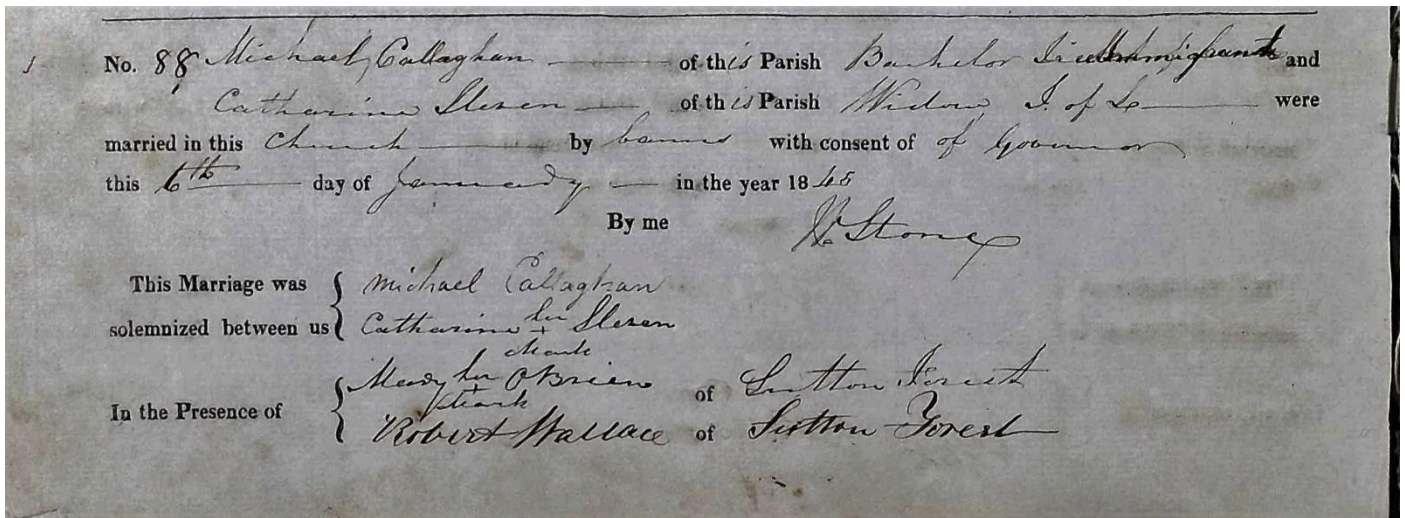 No. 88 Michael Callaghan of this Parish Bachelor Immigrant and
Catharine Sleven of this Parish Widow T. of L were
married in this Church by banns with consent of of Governor
this 6th day of January in the year 1845
By me W Stone
This Marriage was Michael Callaghan
solemnized between us Catharine her + Mark Sleven
In the Presence of Mary her + Mark O'Brien of Sutton Forest
Robert Wallace of Sutton Forest